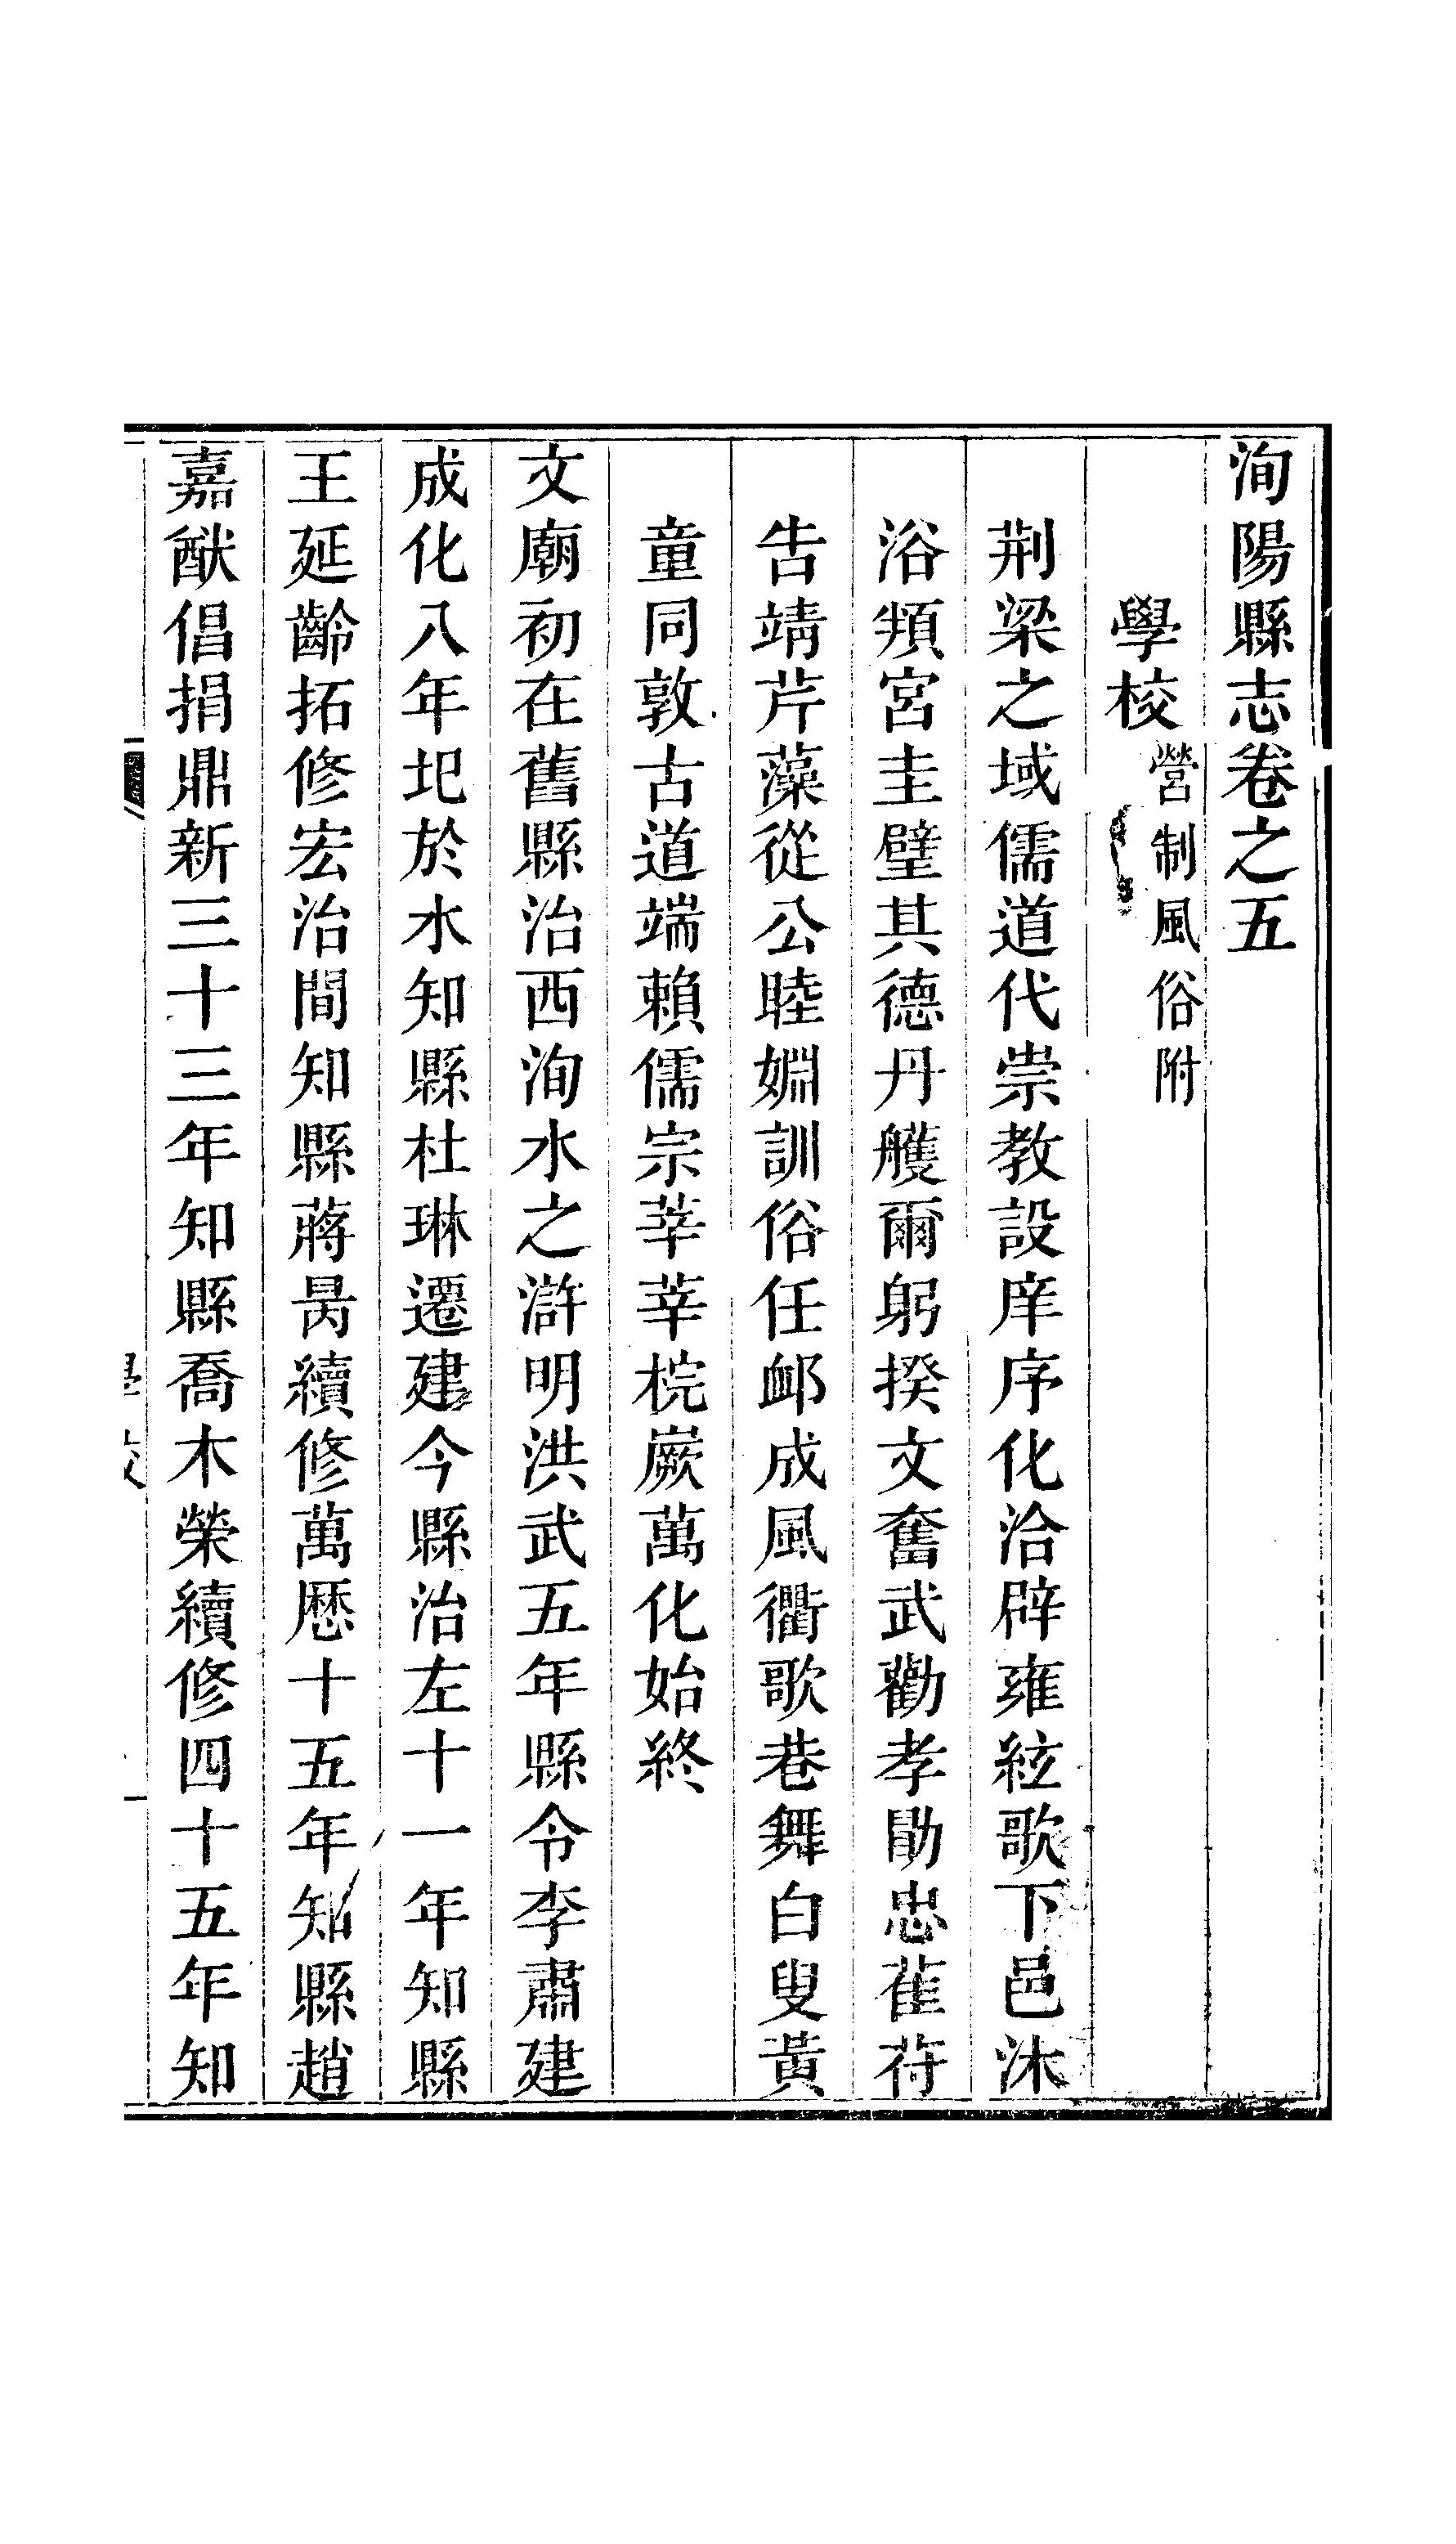 洵陽縣志卷之五
學校營制風俗附
荆梁之域儒道代崇教設庠序化洽辟雍絃歌下邑沐
浴頖宮圭璧其德丹艧爾躬揆文奮武勸孝勖忠萑苻
告靖芹藻從公睦婣訓俗任卹成風衢歌巷舞白叟黃
童同敦古道端賴儒宗莘莘梡嶡萬化始終
文廟初在舊縣治西洵水之滸明洪武五年縣令李肅建
成化八年圯於水知縣杜琳遷建今縣治左十一年知縣
王延齡拓修宏治間知縣蔣昺續修萬厯十五年知縣趙
嘉猷倡捐鼎新三十三年知縣喬木榮續修四十五年知